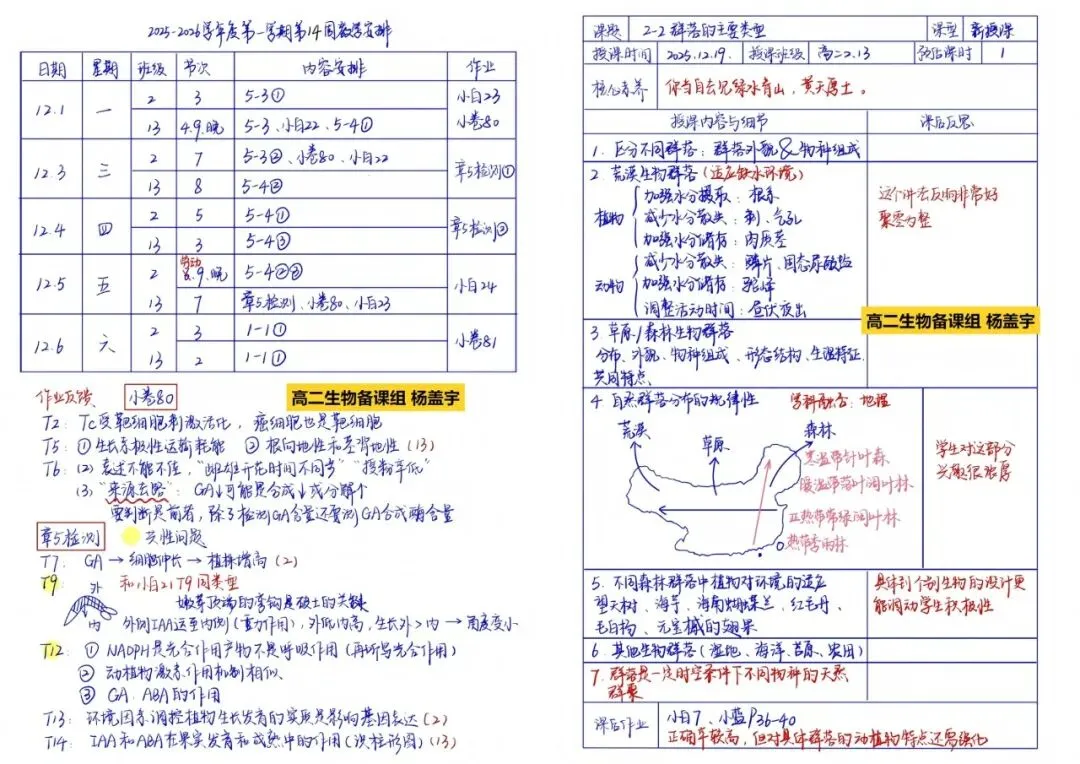 2025-2026学年度第一学期第14周教学安排
日期 星期 班级 节次 内容安排 作业
12.1 一 2 3 5-3① 小白23 小卷80
13 4.9.晚 5-3、小白22、5-4①
12.3 三 2 7 5-3②、小卷80、小白22 章5检测①
13 8 5-4②
12.4 四 2 5 5-4① 章5检测②
13 3 5-4③
12.5 五 2 劳动 8、9、晚 5-4②③ 小白24
13 7 章5检测、小卷80、小白23
12.6 六 2 3 1-1① 小卷81
13 2 1-1①
作业反馈 小卷80
高二生物备课组 杨盖宇
T2: Tc受靶细胞刺激活化，癌细胞也是靶细胞
T5: ①生长素极性运输耗能 ②根向地性和茎背地性(13)
T6: (2) 表述不能不佳，"雌雄开花时间不同步" "授粉率低"
(3) "来源去路"：GA↓可能是合成↓或分解↑
要判断是前者，除了检测GA含量还要测GA合成酶含量
章5检测 共性问题
T7: GA→细胞伸长→植株增高(2)
T9: 和小白21 T9同类型
外
嫩芽顶端的弯钩是破土的关键
内 外侧IAA运至内侧(重力作用)，外低内高，生长外>内→角度变小
T12: ① NADPH是光合作用产物不是呼吸作用(再听写光合作用)
② 动植物激素作用机制相似
③ GA、ABA的作用
T13: 环境因素调控植物生长发育的实质是影响基因表达(2)
T14: IAA和ABA在果实发育和成熟中的作用(误柱形图)(13)
课题 2-2 群落的主要类型 课型 新授课
授课时间 2025.12.19. 授课班级 高二2.13 预估课时 1
核心素养 你当自去见绿水青山，黄天厚土。
授课内容与细节 课后反思
1. 区分不同群落：群落外貌&物种组成
2. 荒漠生物群落(适应缺水环境)
植物 加强水分摄取：根系
减少水分散失：刺、气孔
加强水分储存：肉质茎
这个讲法反响非常好
聚零为整
动物 减少水分散失：鳞片、固态尿酸盐
加强水分储存：驼峰
调整活动时间：昼伏夜出
高二生物备课组 杨盖宇
3 草原/森林生物群落
分布、外貌、物种组成、形态结构、生理特征、
共同特点、
4 自然群落分布的规律性 学科融合：地理
荒漠 草原 森林
寒温带针叶林
暖温带落叶阔叶林
亚热带常绿阔叶林
热带季雨林
学生对这部分
兴趣很浓厚
5. 不同森林群落中植物对环境的适应
望天树、海芋、海南蝴蝶兰、红毛丹、
毛白杨、元宝槭的翅果
具体到个别生物的设计更
能调动学生积极性
6. 其他生物群落(湿地、海洋、苔原、农田)
7. 群落是一定时空条件下不同物种的天然
群聚
课后作业 小白7、小蓝P36-40
正确率较高，但对具体群落的动植物特点还需强化